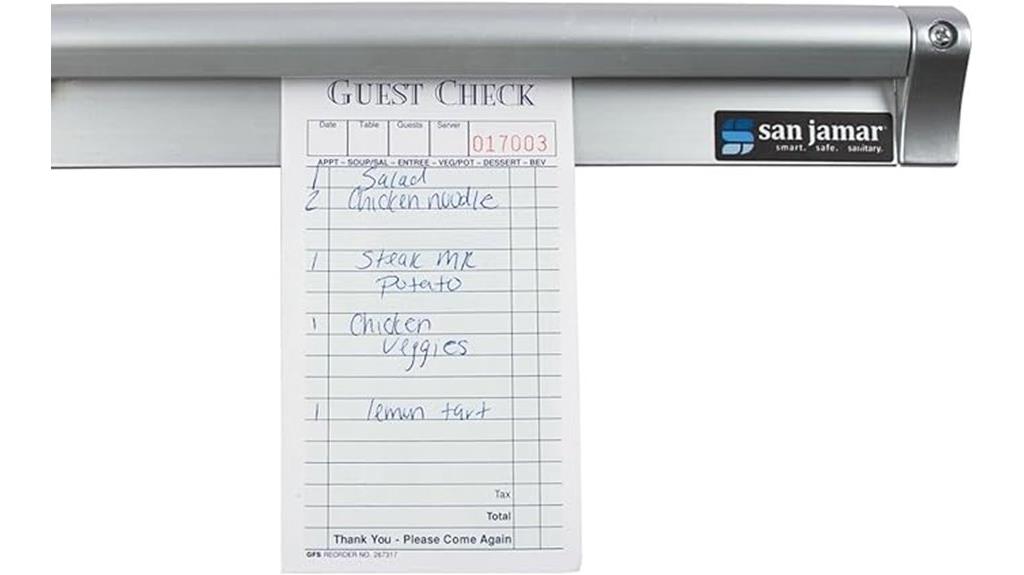 GUEST CHECK
Date Table Guests Server
017003
APPT – SOUP/SAL – ENTREE – VEG/POT – DESSERT – BEV
1 Salad
2 Chicken noodle
1 Steak MR
potato
1 Chicken
veggies
1 lemon tart
Tax
Total
Thank You - Please Come Again
GFS REORDER NO. 267317
san jamar
smart. safe. sanitary.